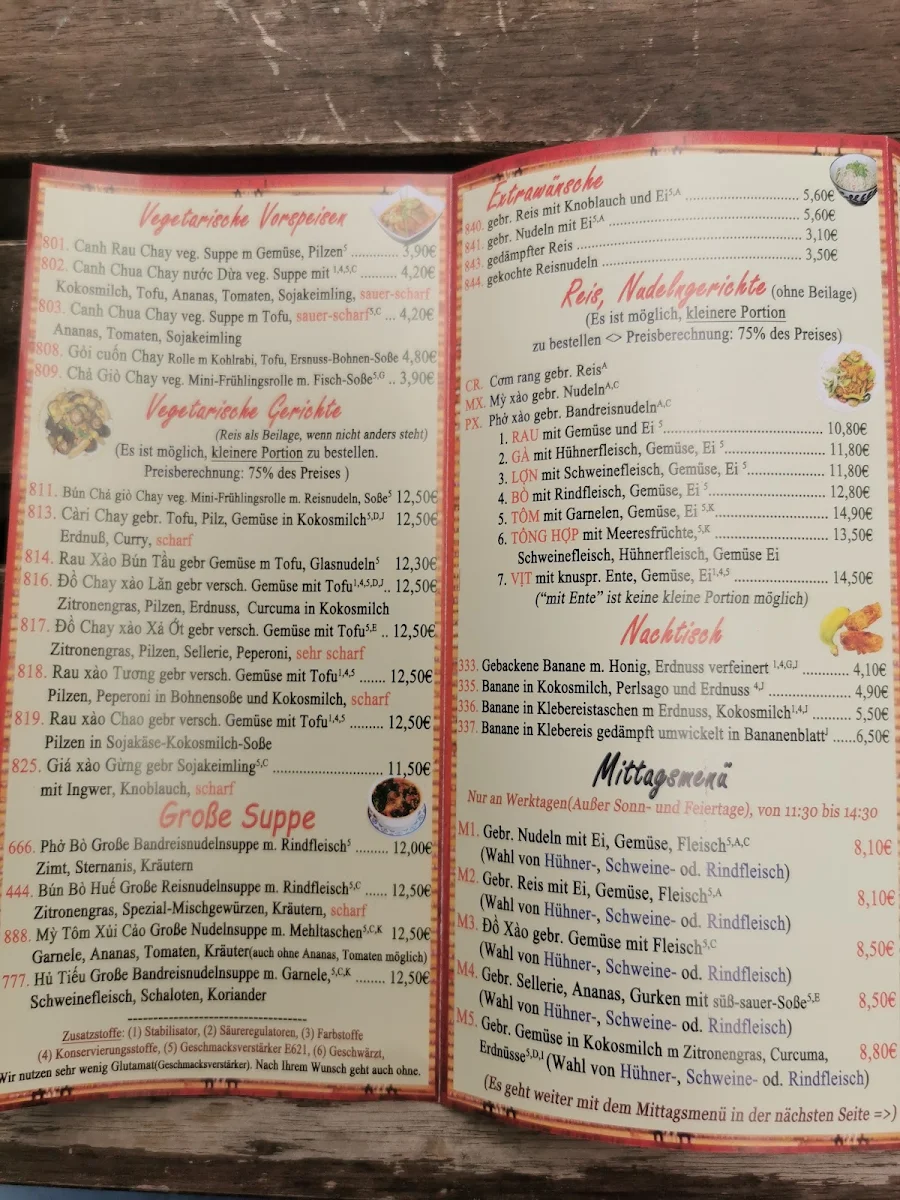 Vegetarische Vorspeisen
801. Canh Rau Chay veg. Suppe m Gemüse, Pilzen⁵ ........... 3,90€
802. Canh Chua Chay nước Dừa veg. Suppe mit ¹,⁴,⁵,C ......... 4,20€
Kokosmilch, Tofu, Ananas, Tomaten, Sojakeimling, sauer-scharf
803. Canh Chua Chay veg. Suppe m Tofu, sauer-scharf⁵,C ... 4,20€
Ananas, Tomaten, Sojakeimling
808. Gỏi cuốn Chay Rolle m Kohlrabi, Tofu, Ersnuss-Bohnen-Soße 4,80€
809. Chả Giò Chay veg. Mini-Frühlingsrolle m. Fisch-Soße⁵,G .. 3,90€
Vegetarische Gerichte
(Reis als Beilage, wenn nicht anders steht)
(Es ist möglich, kleinere Portion zu bestellen.
Preisberechnung: 75% des Preises )
811. Bún Chả giò Chay veg. Mini-Frühlingsrolle m. Reisnudeln, Soße⁵ 12,50€
813. Càri Chay gebr. Tofu, Pilz, Gemüse in Kokosmilch⁵,D,J 12,50€
Erdnuß, Curry, scharf
814. Rau Xào Bún Tầu gebr Gemüse m Tofu, Glasnudeln⁵ 12,30€
816. Đồ Chay xào Lăn gebr versch. Gemüse mit Tofu¹,⁴,⁵,D,J.. 12,50€
Zitronengras, Pilzen, Erdnuss, Curcuma in Kokosmilch
817. Đồ Chay xào Xả Ớt gebr versch. Gemüse mit Tofu⁵,E .. 12,50€
Zitronengras, Pilzen, Sellerie, Peperoni, sehr scharf
818. Rau xào Tương gebr versch. Gemüse mit Tofu¹,⁴,⁵ ....... 12,50€
Pilzen, Peperoni in Bohnensoße und Kokosmilch, scharf
819. Rau xào Chao gebr versch. Gemüse mit Tofu¹,⁴,⁵ ......... 12,50€
Pilzen in Sojakäse-Kokosmilch-Soße
825. Giá xào Gừng gebr Sojakeimling⁵,C ............................ 11,50€
mit Ingwer, Knoblauch, scharf
Große Suppe
666. Phở Bò Große Bandreisnudelnsuppe m. Rindfleisch⁵ ......... 12,00€
Zimt, Sternanis, Kräutern
444. Bún Bò Huế Große Reisnudelnsuppe m. Rindfleisch⁵,C ...... 12,50€
Zitronengras, Spezial-Mischgewürzen, Kräutern, scharf
888. Mỳ Tôm Xủi Cảo Große Nudelnsuppe m. Mehltaschen⁵,C,K 12,50€
Garnele, Ananas, Tomaten, Kräuter(auch ohne Ananas, Tomaten möglich)
777. Hủ Tiếu Große Bandreisnudelnsuppe m. Garnele,⁵,C,K ....... 12,50€
Schweinefleisch, Schaloten, Koriander
------------------------------------
Zusatzstoffe: (1) Stabilisator, (2) Säureregulatoren, (3) Farbstoffe
(4) Konservierungsstoffe, (5) Geschmacksverstärker E621, (6) Geschwärzt,
Wir nutzen sehr wenig Glutamat(Geschmacksverstärker). Nach Ihrem Wunsch geht auch ohne.
Extrawünsche
840. gebr. Reis mit Knoblauch und Ei⁵,A ........................ 5,60€
841. gebr. Nudeln mit Ei⁵,A ........................................ 5,60€
843. gedämpfter Reis ................................................ 3,10€
844. gekochte Reisnudeln .......................................... 3,50€
Reis, Nudelngerichte (ohne Beilage)
(Es ist möglich, kleinere Portion
zu bestellen <> Preisberechnung: 75% des Preises)
CR. Cơm rang gebr. Reis^A
MX. Mỳ xào gebr. Nudeln^A,C
PX. Phở xào gebr. Bandreisnudeln^A,C
1. RAU mit Gemüse und Ei ⁵................................... 10,80€
2. GÀ mit Hühnerfleisch, Gemüse, Ei ⁵..................... 11,80€
3. LỢN mit Schweinefleisch, Gemüse, Ei ⁵................. 11,80€
4. BÒ mit Rindfleisch, Gemüse, Ei ⁵......................... 12,80€
5. TÔM mit Garnelen, Gemüse, Ei ⁵,K....................... 14,90€
6. TÔNG HỢP mit Meeresfrüchte,⁵,K....................... 13,50€
Schweinefleisch, Hühnerfleisch, Gemüse Ei
7. VỊT mit knuspr. Ente, Gemüse, Ei¹,⁴,⁵ .................... 14,50€
("mit Ente" ist keine kleine Portion möglich)
Nachtisch
333. Gebackene Banane m. Honig, Erdnuss verfeinert ¹,⁴,G,J ........... 4,10€
335. Banane in Kokosmilch, Perlsago und Erdnuss ⁴,J ................. 4,90€
336. Banane in Klebereistaschen m Erdnuss, Kokosmilch¹,⁴,J ......... 5,50€
337. Banane in Klebereis gedämpft umwickelt in Bananenblatt^J .....6,50€
Mittagsmenü
Nur an Werktagen(Außer Sonn- und Feiertage), von 11:30 bis 14:30
M1. Gebr. Nudeln mit Ei, Gemüse, Fleisch⁵,A,C 8,10€
(Wahl von Hühner-, Schweine- od. Rindfleisch)
M2. Gebr. Reis mit Ei, Gemüse, Fleisch⁵,A 8,10€
(Wahl von Hühner-, Schweine- od. Rindfleisch)
M3. Đồ Xào gebr. Gemüse mit Fleisch⁵,C 8,50€
(Wahl von Hühner-, Schweine- od. Rindfleisch)
M4. Gebr. Sellerie, Ananas, Gurken mit süß-sauer-Soße⁵,E 8,50€
(Wahl von Hühner-, Schweine- od. Rindfleisch)
M5. Gebr. Gemüse in Kokosmilch m Zitronengras, Curcuma, 8,80€
Erdnüsse⁵,D,J (Wahl von Hühner-, Schweine- od. Rindfleisch)
(Es geht weiter mit dem Mittagsmenü in der nächsten Seite =>)